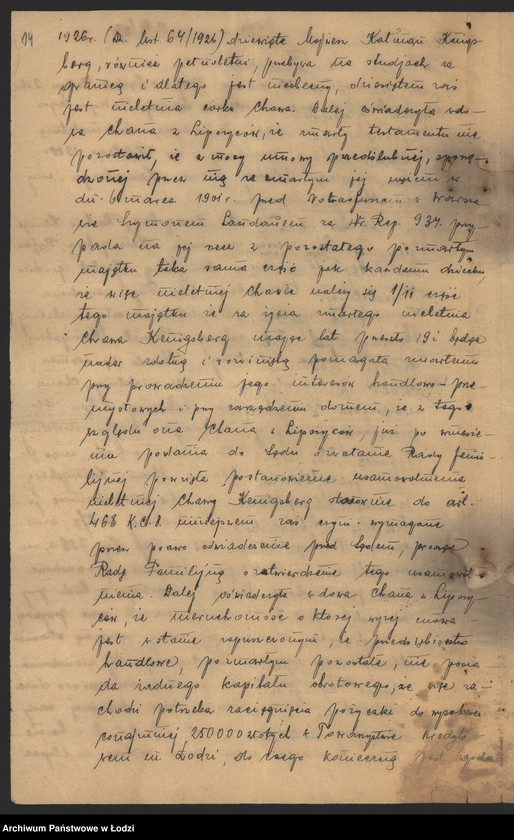 14
1926r. (Dz. hst. 64/1926) dziewiąte Mojżesz Kalman Kenigs-
berg, również pełnoletni, przebywa na studjach za
granicą i dlatego jest nieobecny, dziesiątem zaś
jest nieletnia córka Chawa. Dalej oświadczyła wdo-
wa Chana z Liporyców, że zmarły testamentu nie
pozostawił, że z mocy umowy przedślubnej, sporzą-
dzonej przez nią ze zmarłym jej mężem w
dn. 6 marca 1901r. przed Notarjuszem w Warsza
wie Szymonem Landauem za Nr. Rep. 934. przy-
pada na jej rzecz z pozostałego po zmarłym
majątku taka sama część jak każdemu dziecku,
że więc nieletniej Chawie należy się 1/11 część
tego majątku że za życia zmarłego nieletnia
Chawa Kenigsberg mając lat przeszło 19 i będąc
nader zdolną i rozwiniętą pomagała zmarłemu
przy prowadzeniu jego interesów handlowo-prze-
mysłowych i przy zarządzeniu domem, że z tego
względu ona Chana z Liporyców, już po wniesie-
niu podania do Sądu o zwołanie Rady fami-
lijnej powzięła postanowienie usamowolnienia
nieletniej Chawy Kenigsberg stosownie do art.
466 K.C.P. niniejszem zaś czyni wymagane
przez prawo oświadczenie przed Sądem, prosząc
Radę Familijną o zatwierdzenie tego usamowol
nienia. Dalej oświadczyła wdowa Chana z Lipory-
ców, że nieruchomość o której wyżej mowa
jest w stanie zapuszczonym, że przedsiębiorstwo
handlowe, po zmarłym pozostałe, nie posia-
da żadnego kapitału obrotowego, że więc za-
chodzi potrzeba zaciągnięcia pożyczki do wysokości
conajmniej 250000 złotych w Towarzystwie Kredyto-
wem m. Łodzi, do czego konieczną jest zgoda
Archiwum Państwowe w Łodzi